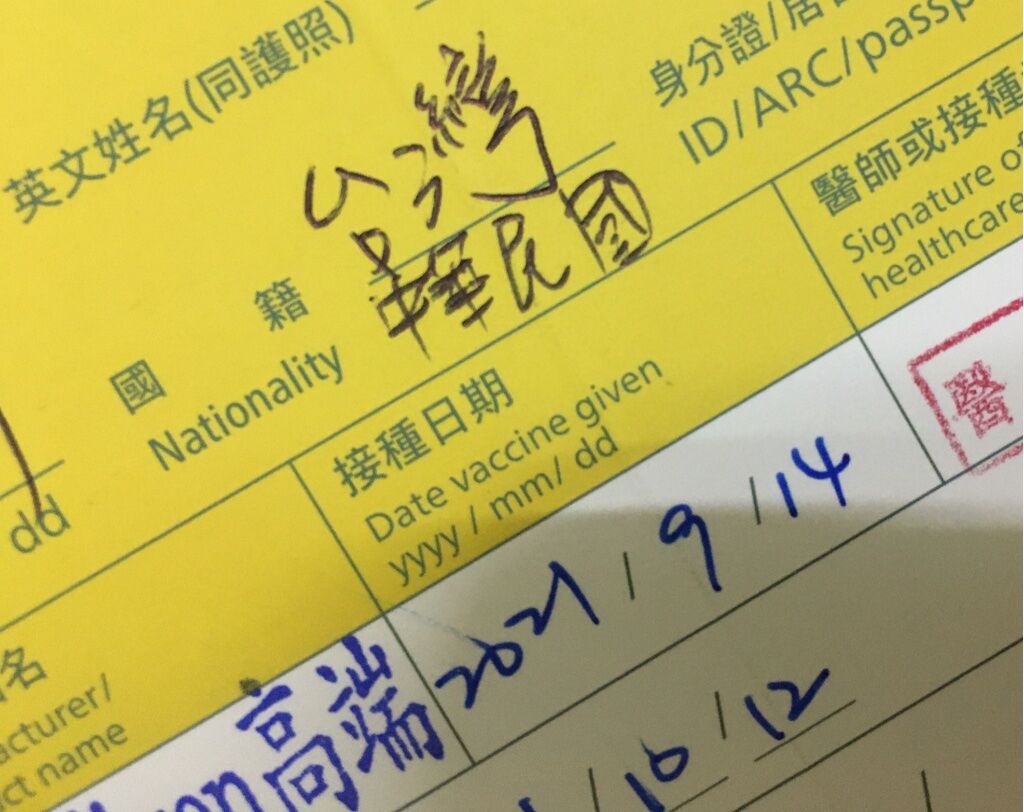 英文姓名(同護照)
身分證/居
ID/ARC/passp
台灣
中華民國
國籍
Nationality
dd
醫師或接種
Signature of
healthcare
接種日期
Date vaccine given
yyyy / mm/ dd
醫
2021 / 9 / 14
名
acturer/
ct name
高端
/ 10 / 12